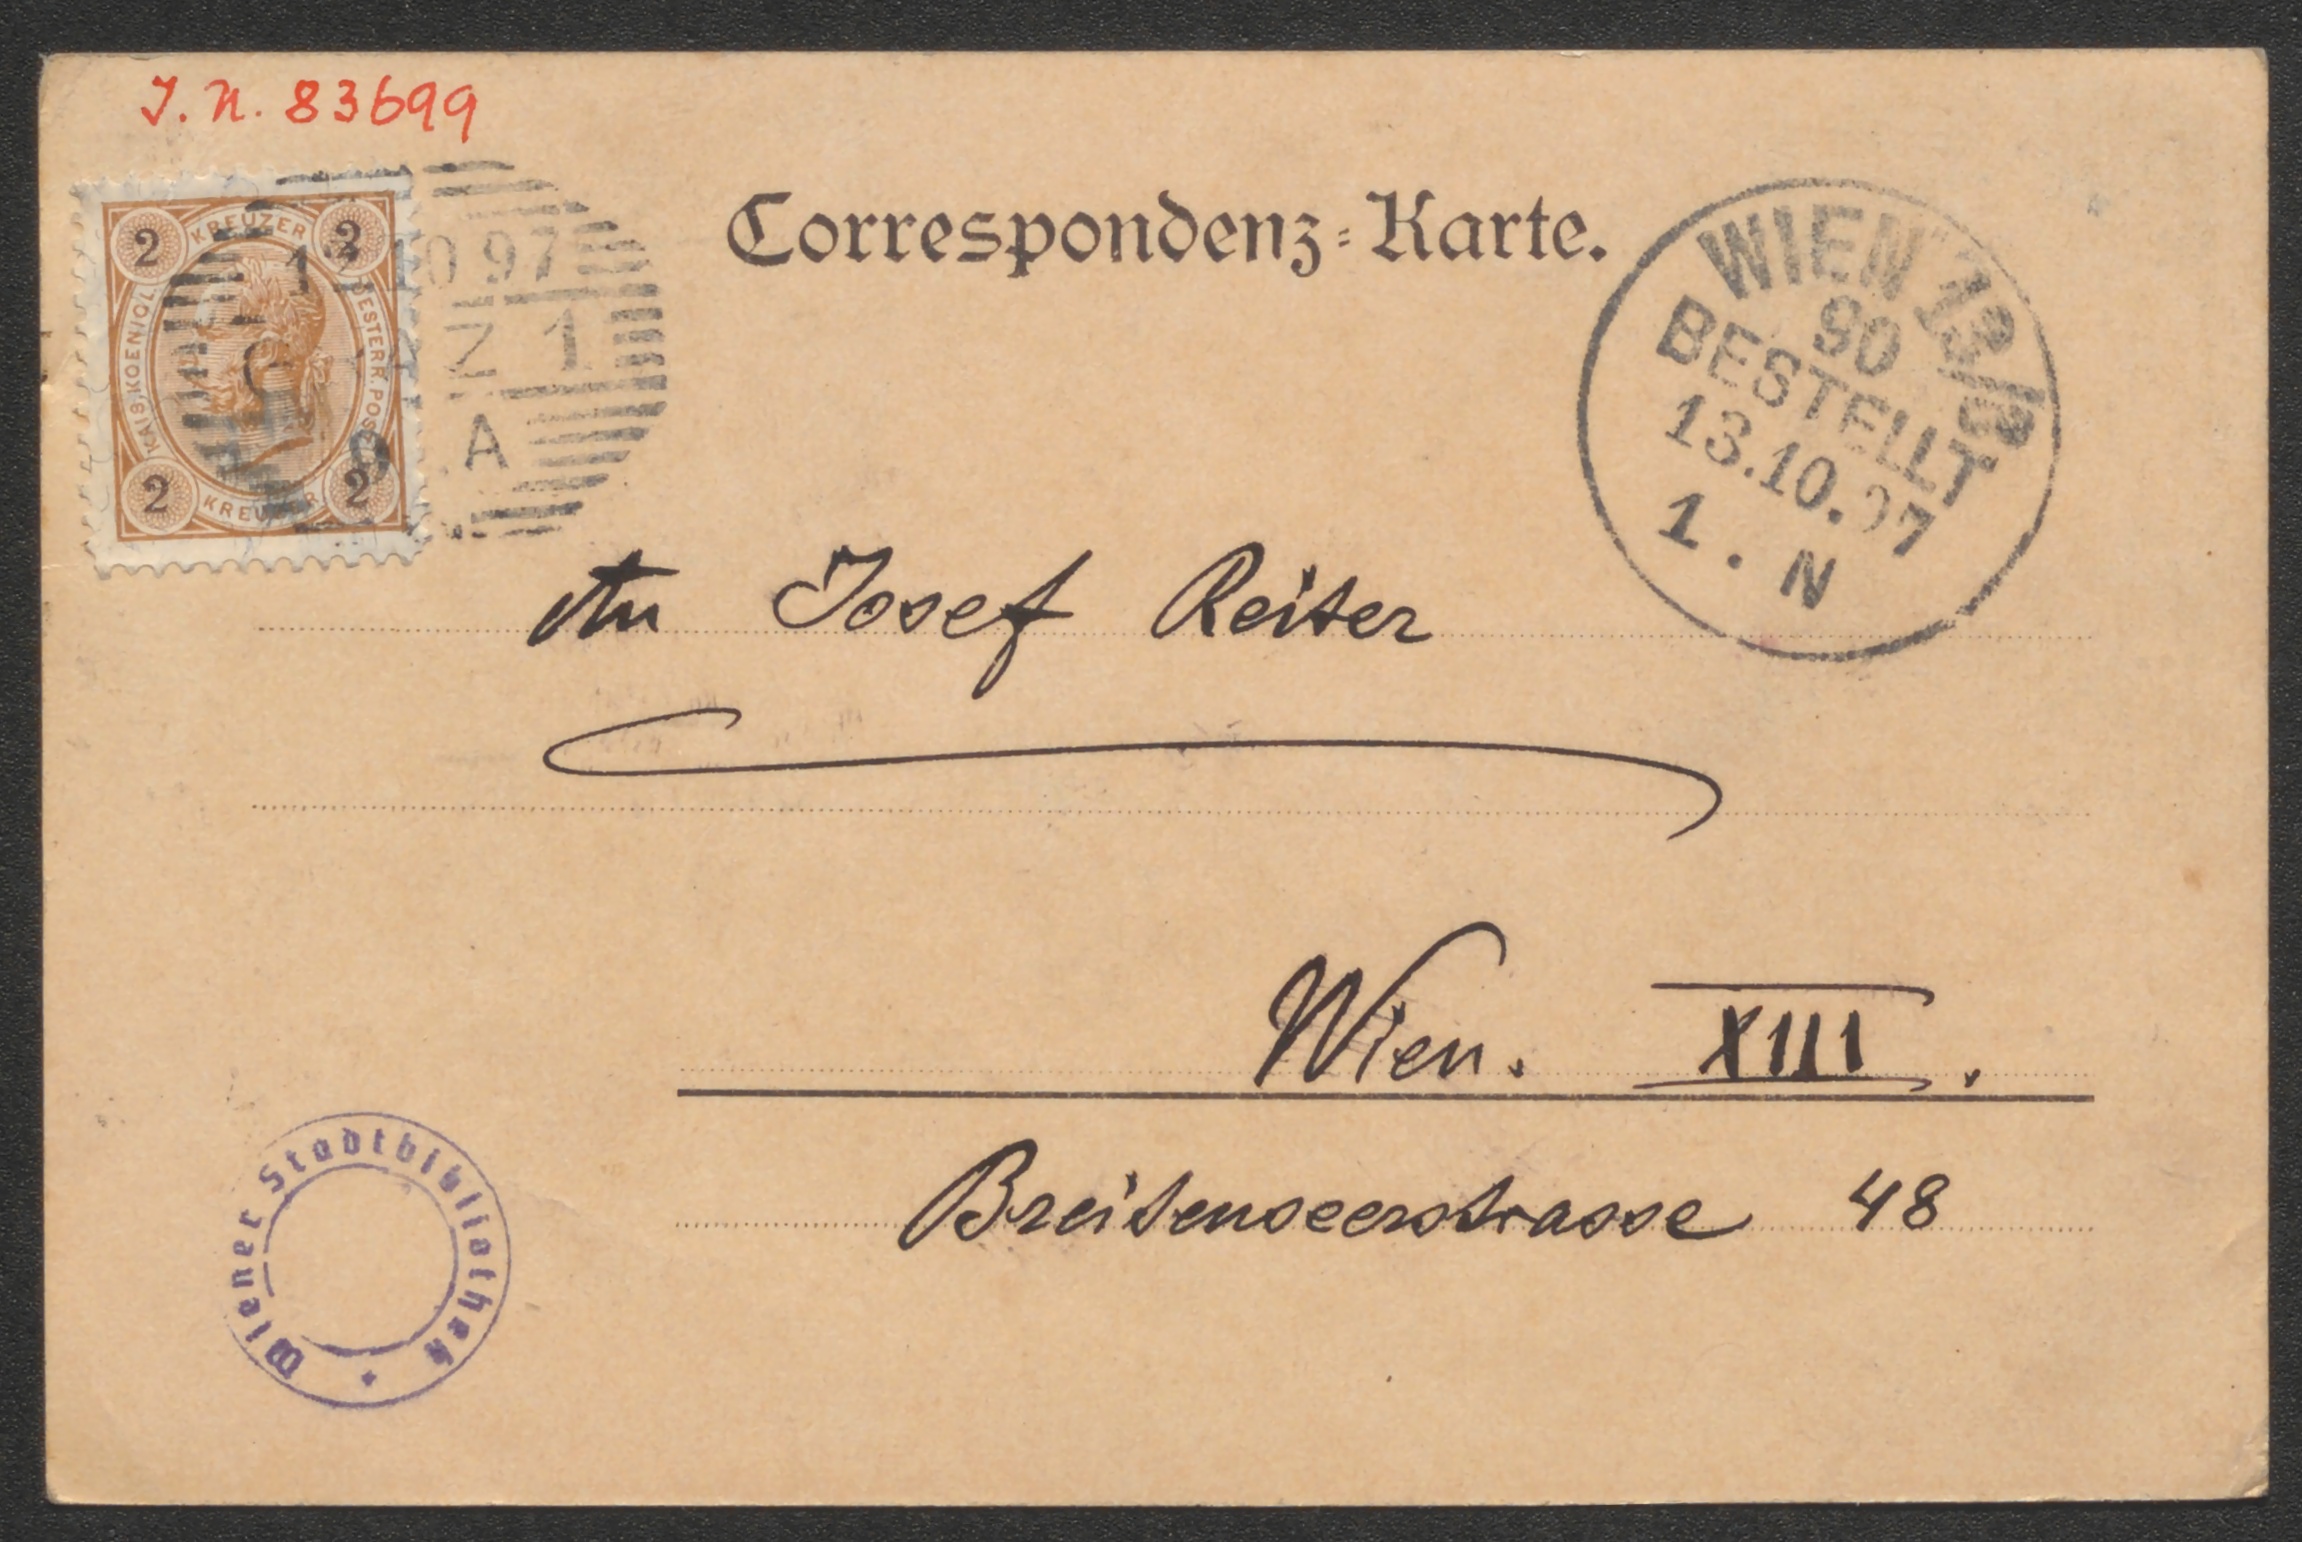 J. N. 83699
Correspondenz-Karte.
2 KREUZER 2
KAIS. KOENIGL.
OESTERR. POST
2 KREUZER 2
10 97
Z 1
A
WIEN 13/8
90
BESTELLT
13.10.97
1. N
An Josef Reiter
Wien. XIII.
Breitenseerstrasse 48
Wiener Stadtbibliothek